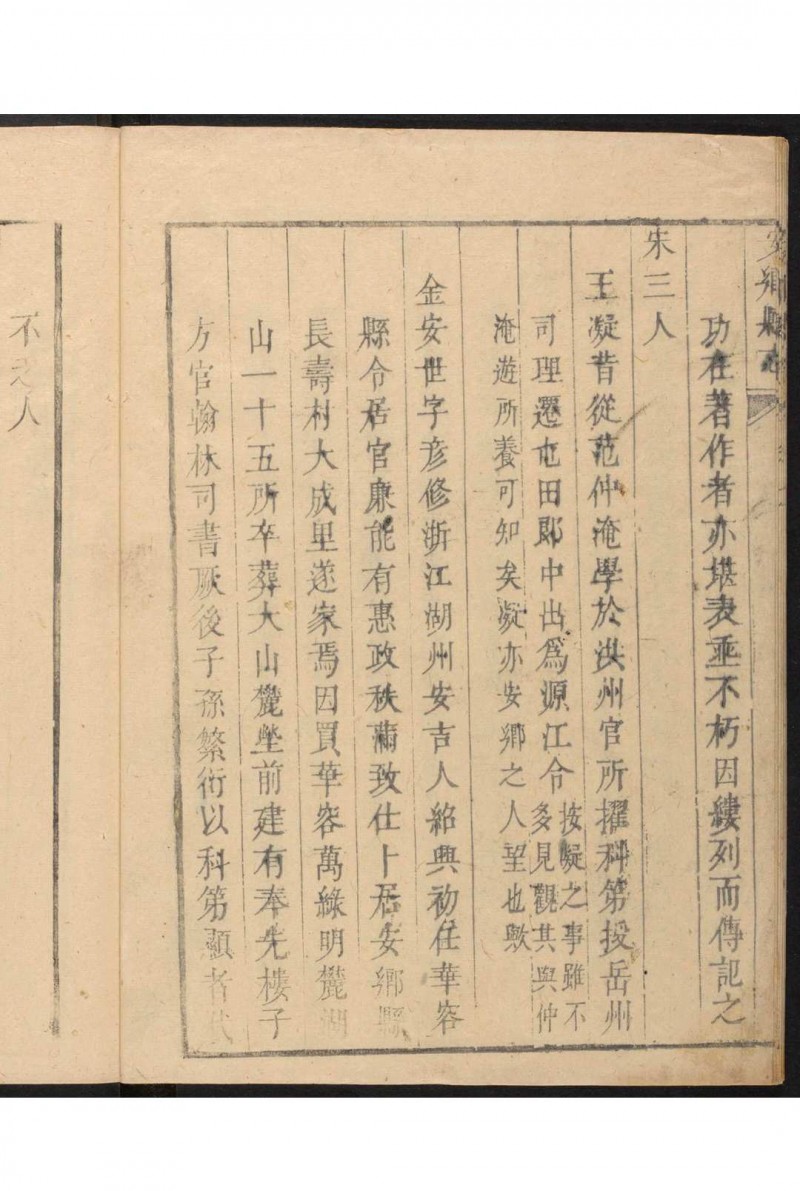 安鄉縣志
功在著作者亦堪表垂不朽因縷列而傳記之
宋三人
王凝昔從范仲淹學於洪州官所擢科第授岳州
司理遷屯田郎中出為源江令按凝之事雖不
多見觀其與仲
淹遊所養可知矣凝亦安鄉之人望也歟
金安世字彥修浙江湖州安吉人紹興初任華容
縣令居官廉能有惠政秩滿致仕卜居安鄉縣
長壽村大成里遂家焉因買華容萬綠明麓湖
山一十五所卒葬大山麓塋前建有奉先樓子
方官翰林司書厥後子孫繁衍以科第顯者代
不乏人